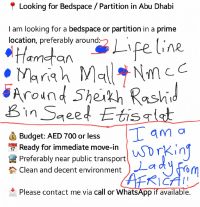 📍 Looking for Bedspace / Partition in Abu Dhabi
I am looking for a bedspace or partition in a prime
location, preferably around:
Hamdan
Lifeline
Mariah Mall
NMCC
Around Sheikh Rashid
Bin Saeed Etisalat
💰 Budget: AED 700 or less
📅 Ready for immediate move-in
🚍 Preferably near public transport
🏠 Clean and decent environment
I am a
Working
Lady from
AFRICA!!
📩 Please contact me via call or WhatsApp if available.